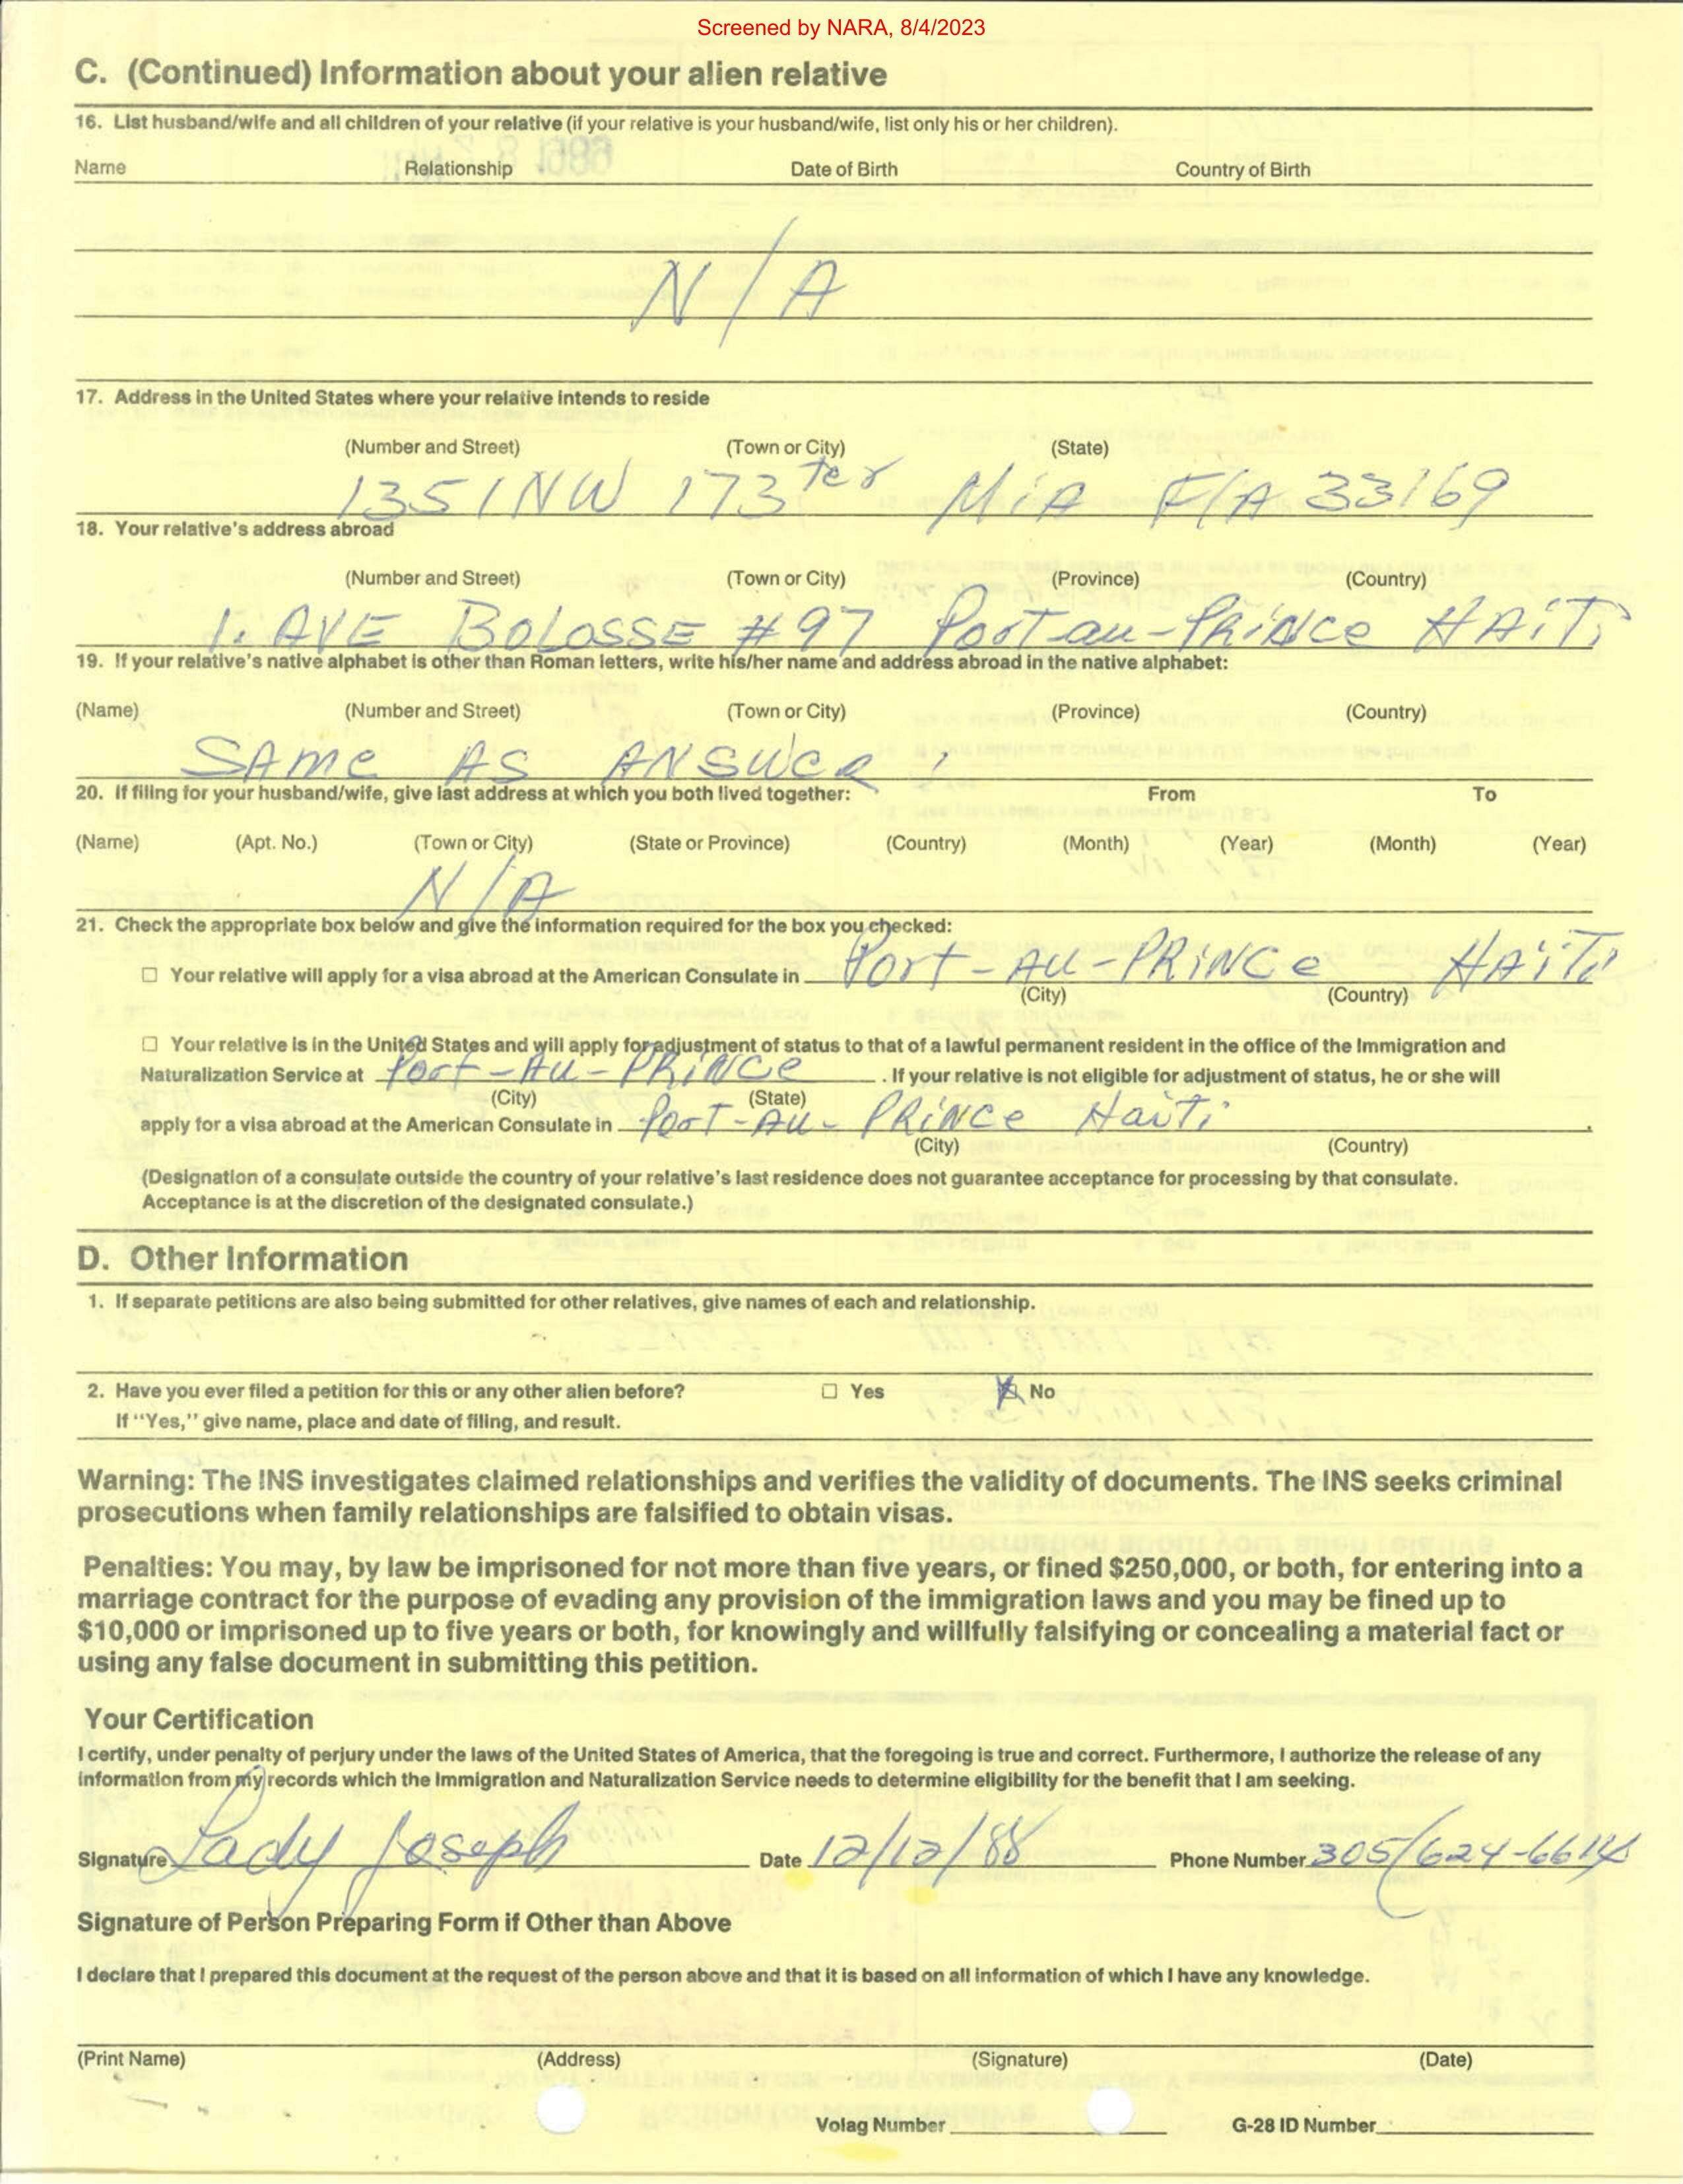 Screened by NARA, 8/4/2023
C. (Continued) Information about your alien relative
16. List husband/wife and all children of your relative (if your relative is your husband/wife, list only his or her children).
Name Relationship Date of Birth Country of Birth
N/A
17. Address in the United States where your relative intends to reside
(Number and Street) (Town or City) (State)
1351 NW 173 ter MiA FlA 33169
18. Your relative's address abroad
(Number and Street) (Town or City) (Province) (Country)
1. AVE BOLOSSE #97 Port-au-PRiNce HAiTi
19. If your relative's native alphabet is other than Roman letters, write his/her name and address abroad in the native alphabet:
(Name) (Number and Street) (Town or City) (Province) (Country)
SAme AS ANSWeR
20. If filing for your husband/wife, give last address at which you both lived together: From To
(Name) (Apt. No.) (Town or City) (State or Province) (Country) (Month) (Year) (Month) (Year)
N/A
21. Check the appropriate box below and give the information required for the box you checked:
☐ Your relative will apply for a visa abroad at the American Consulate in Port-AU-PRiNCe HAiTi
(City) (Country)
☐ Your relative is in the United States and will apply for adjustment of status to that of a lawful permanent resident in the office of the Immigration and
Naturalization Service at Port-AU-PRiNCe . If your relative is not eligible for adjustment of status, he or she will
(City) (State)
apply for a visa abroad at the American Consulate in PorT-AU-PRiNCe Haiti .
(City) (Country)
(Designation of a consulate outside the country of your relative's last residence does not guarantee acceptance for processing by that consulate.
Acceptance is at the discretion of the designated consulate.)
D. Other Information
1. If separate petitions are also being submitted for other relatives, give names of each and relationship.
2. Have you ever filed a petition for this or any other alien before? ☐ Yes ☒ No
If "Yes," give name, place and date of filing, and result.
Warning: The INS investigates claimed relationships and verifies the validity of documents. The INS seeks criminal
prosecutions when family relationships are falsified to obtain visas.
Penalties: You may, by law be imprisoned for not more than five years, or fined $250,000, or both, for entering into a
marriage contract for the purpose of evading any provision of the immigration laws and you may be fined up to
$10,000 or imprisoned up to five years or both, for knowingly and willfully falsifying or concealing a material fact or
using any false document in submitting this petition.
Your Certification
I certify, under penalty of perjury under the laws of the United States of America, that the foregoing is true and correct. Furthermore, I authorize the release of any
information from my records which the Immigration and Naturalization Service needs to determine eligibility for the benefit that I am seeking.
Signature Lady Joseph Date 12/12/88 Phone Number 305/624-6614
Signature of Person Preparing Form if Other than Above
I declare that I prepared this document at the request of the person above and that it is based on all information of which I have any knowledge.
(Print Name) (Address) (Signature) (Date)
Volag Number G-28 ID Number